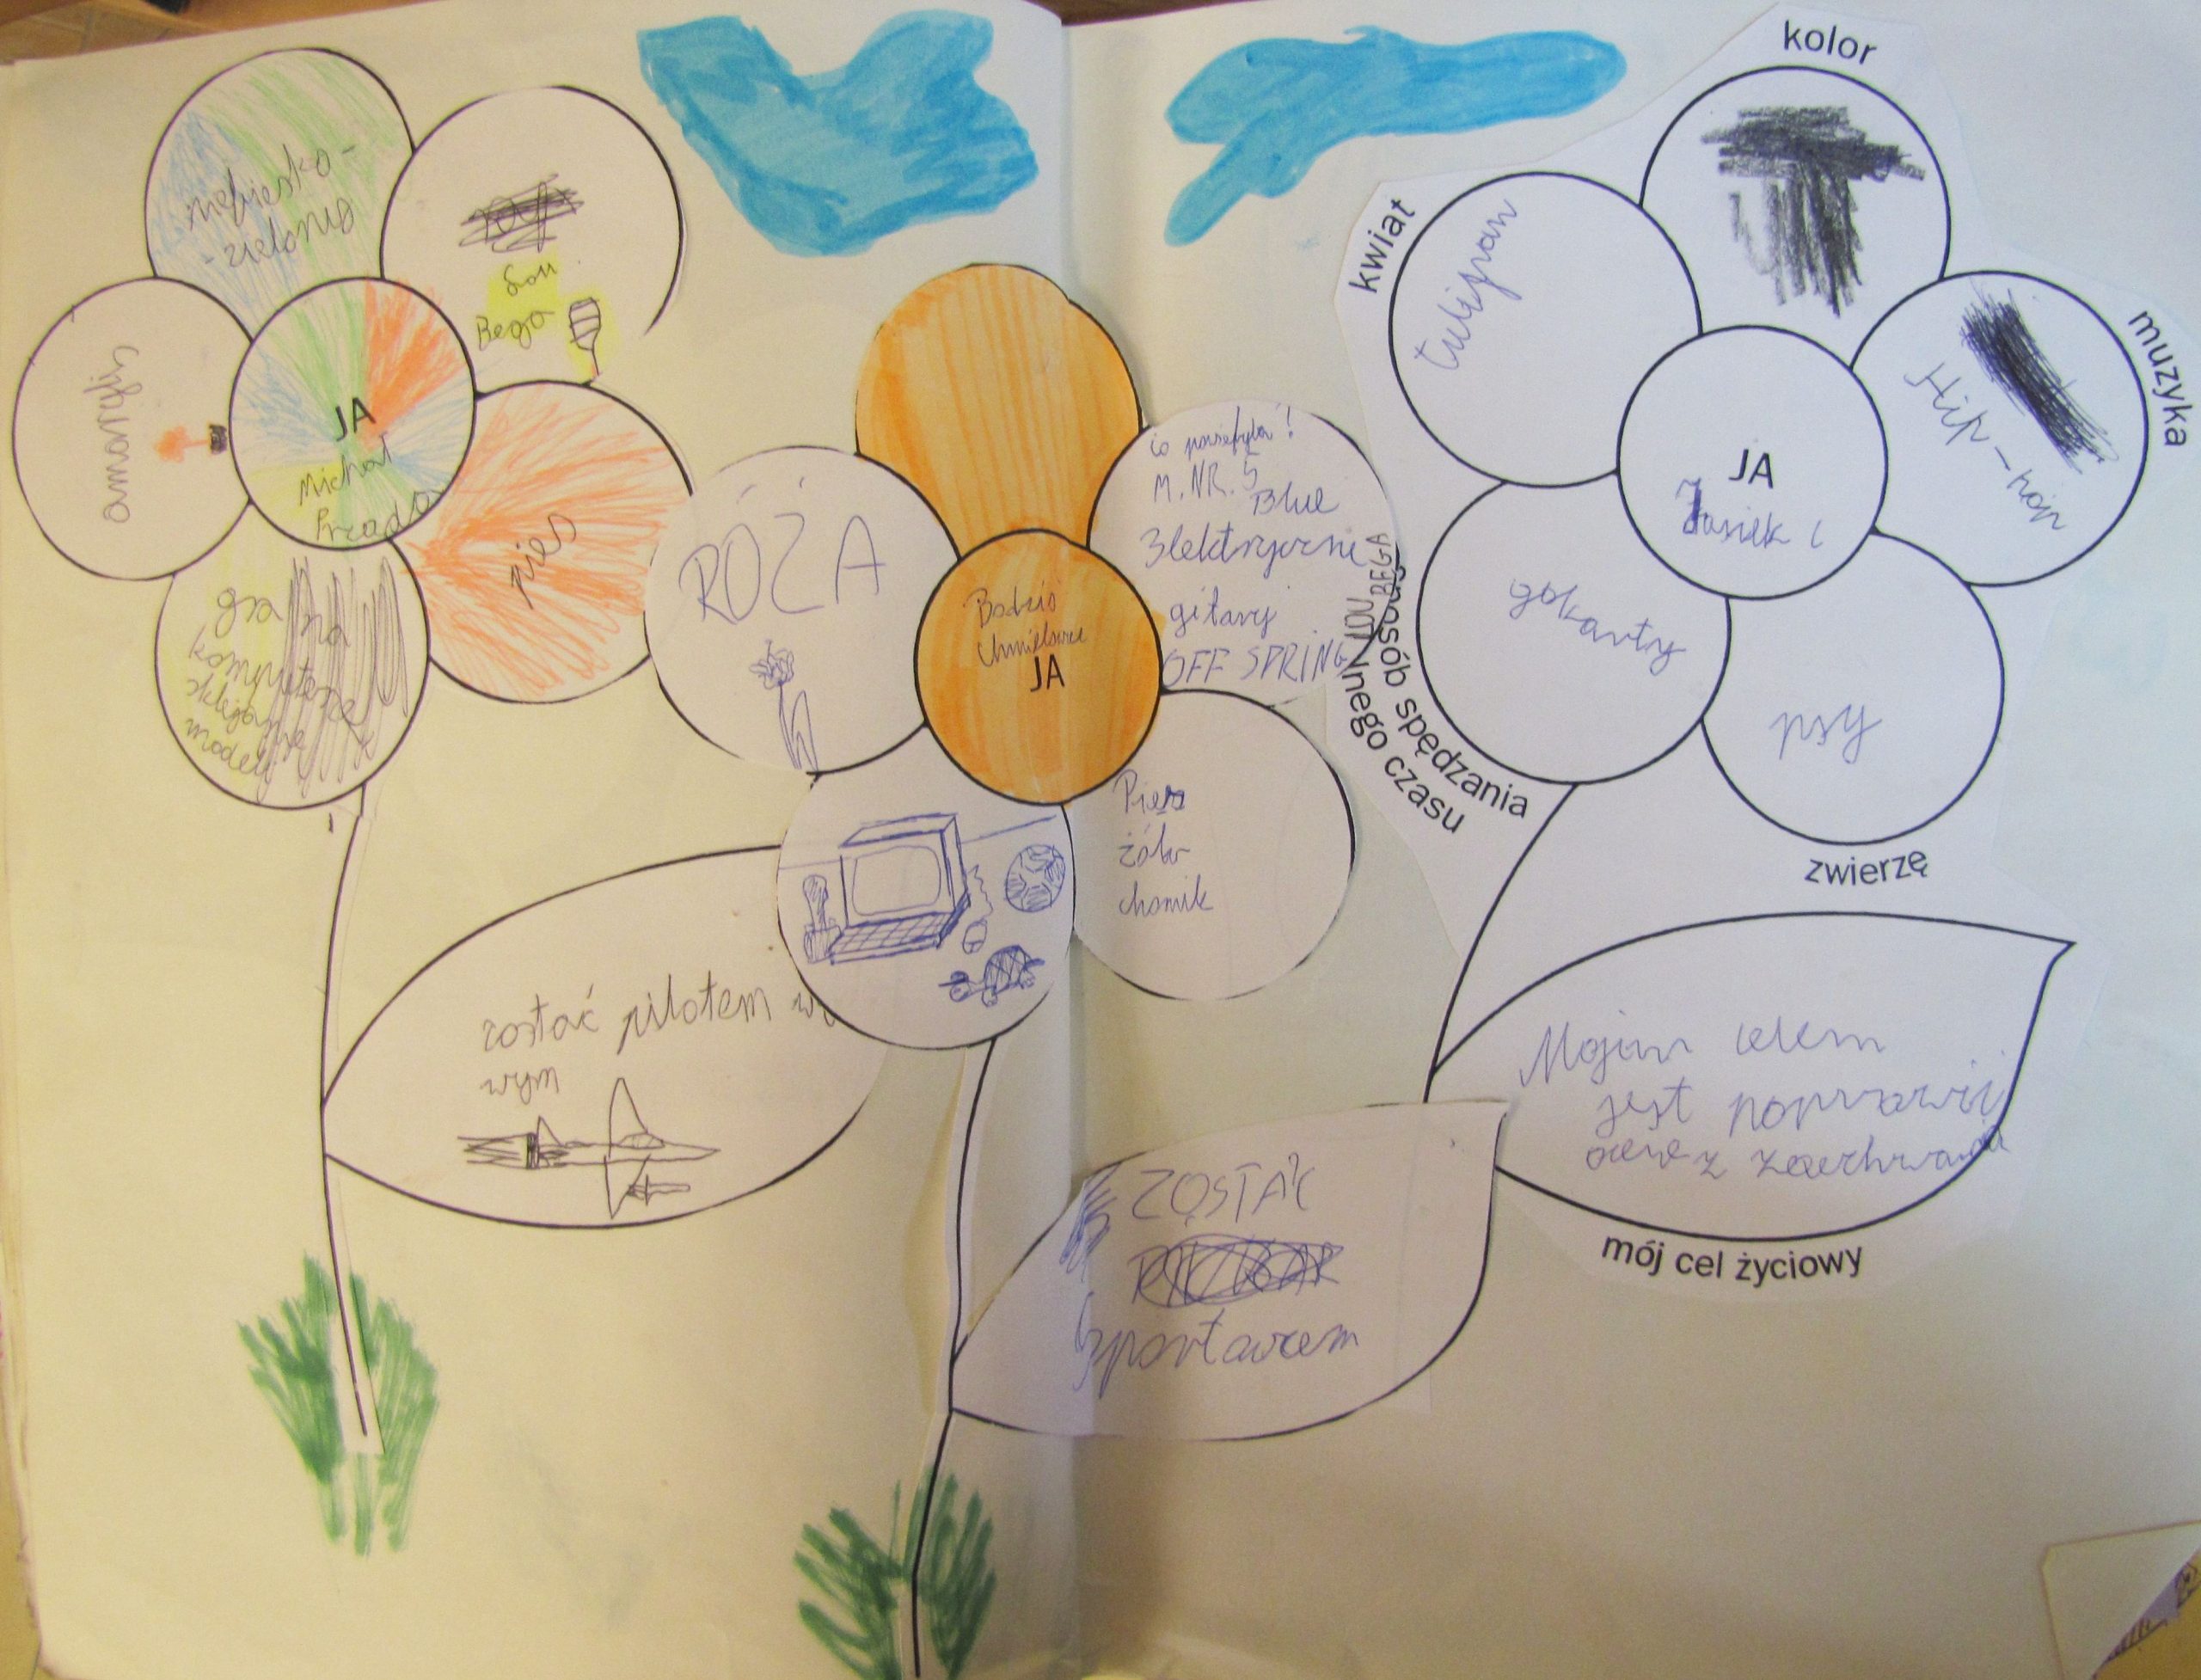 niebiesko-
-zielono
Lou
Bega
amarylis
JA
Michał
pies
gra na
komputerze
sklejanie
modeli
zostać pilotem
wym
RÓŻA
Bodzio
JA
co popadło!
M. NR. 5
Blue
Elektryczne
gitary
OFF SPRING
LOU BEGA
Pies
żółw
chomik
ZOSTAĆ
Sportowcem
kolor
kwiat
tulipan
muzyka
Hip-hop
JA
Jasiek
gokarty
sposób spędzania
wolnego czasu
psy
zwierzę
Moim celem
jest poprawić
ocenę z zachowania
mój cel życiowy